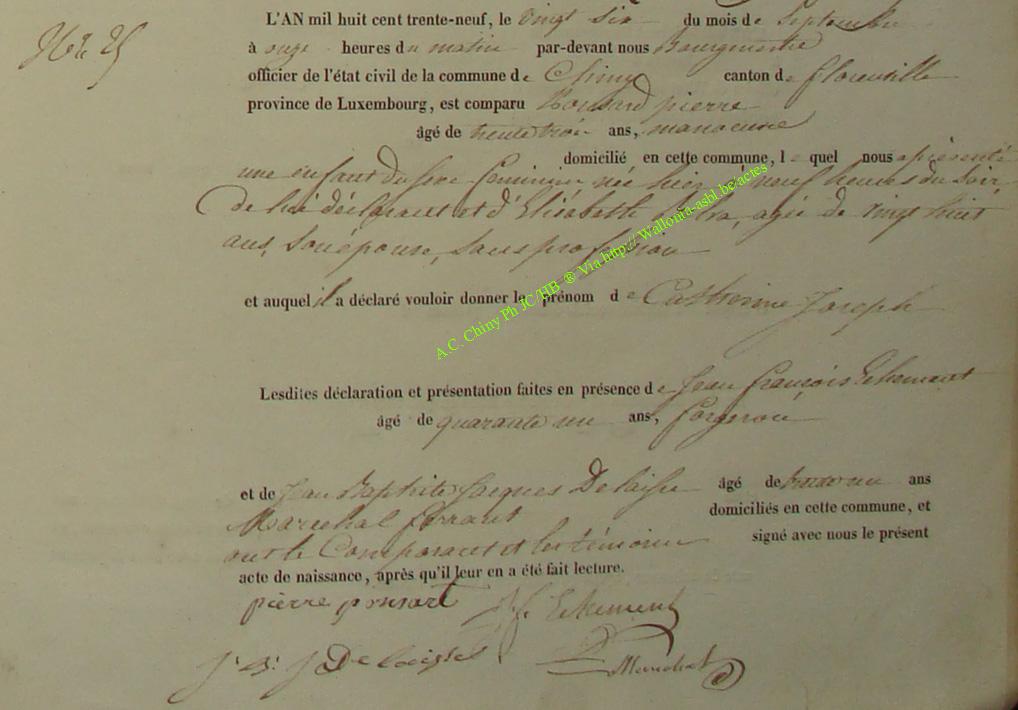 N° 25
L'AN mil huit cent trente-neuf, le vingt six du mois de Septembre
à onze heures du matin par-devant nous Bourgmestre
officier de l'état civil de la commune de Chiny canton de florenville
province de Luxembourg, est comparu Ponsard pierre
âgé de trente trois ans, manoeuvre
domicilié en cette commune, lequel nous a présenté
une enfant du sexe feminin née hier à neuf heures du soir,
de lui déclarant et d'Elisabeth agée de vingt huit
ans, son épouse, sans profession
et auquel il a déclaré vouloir donner le prénom de Catherine Joseph
Lesdites déclaration et présentation faites en présence de Jean françois
âgé de quarante un ans,
et de Jean Baptiste Jacques Delaisse âgé de trente un ans
Marechal ferrant domiciliés en cette commune, et
ont le Comparant et les témoins signé avec nous le présent
acte de naissance, après qu'il leur en a été fait lecture.
pierre ponsart J. f.
J. B. J Delaisse
A.C. Chiny Ph JC/HB ® Via http:// Wallonia-asbl.be/actes